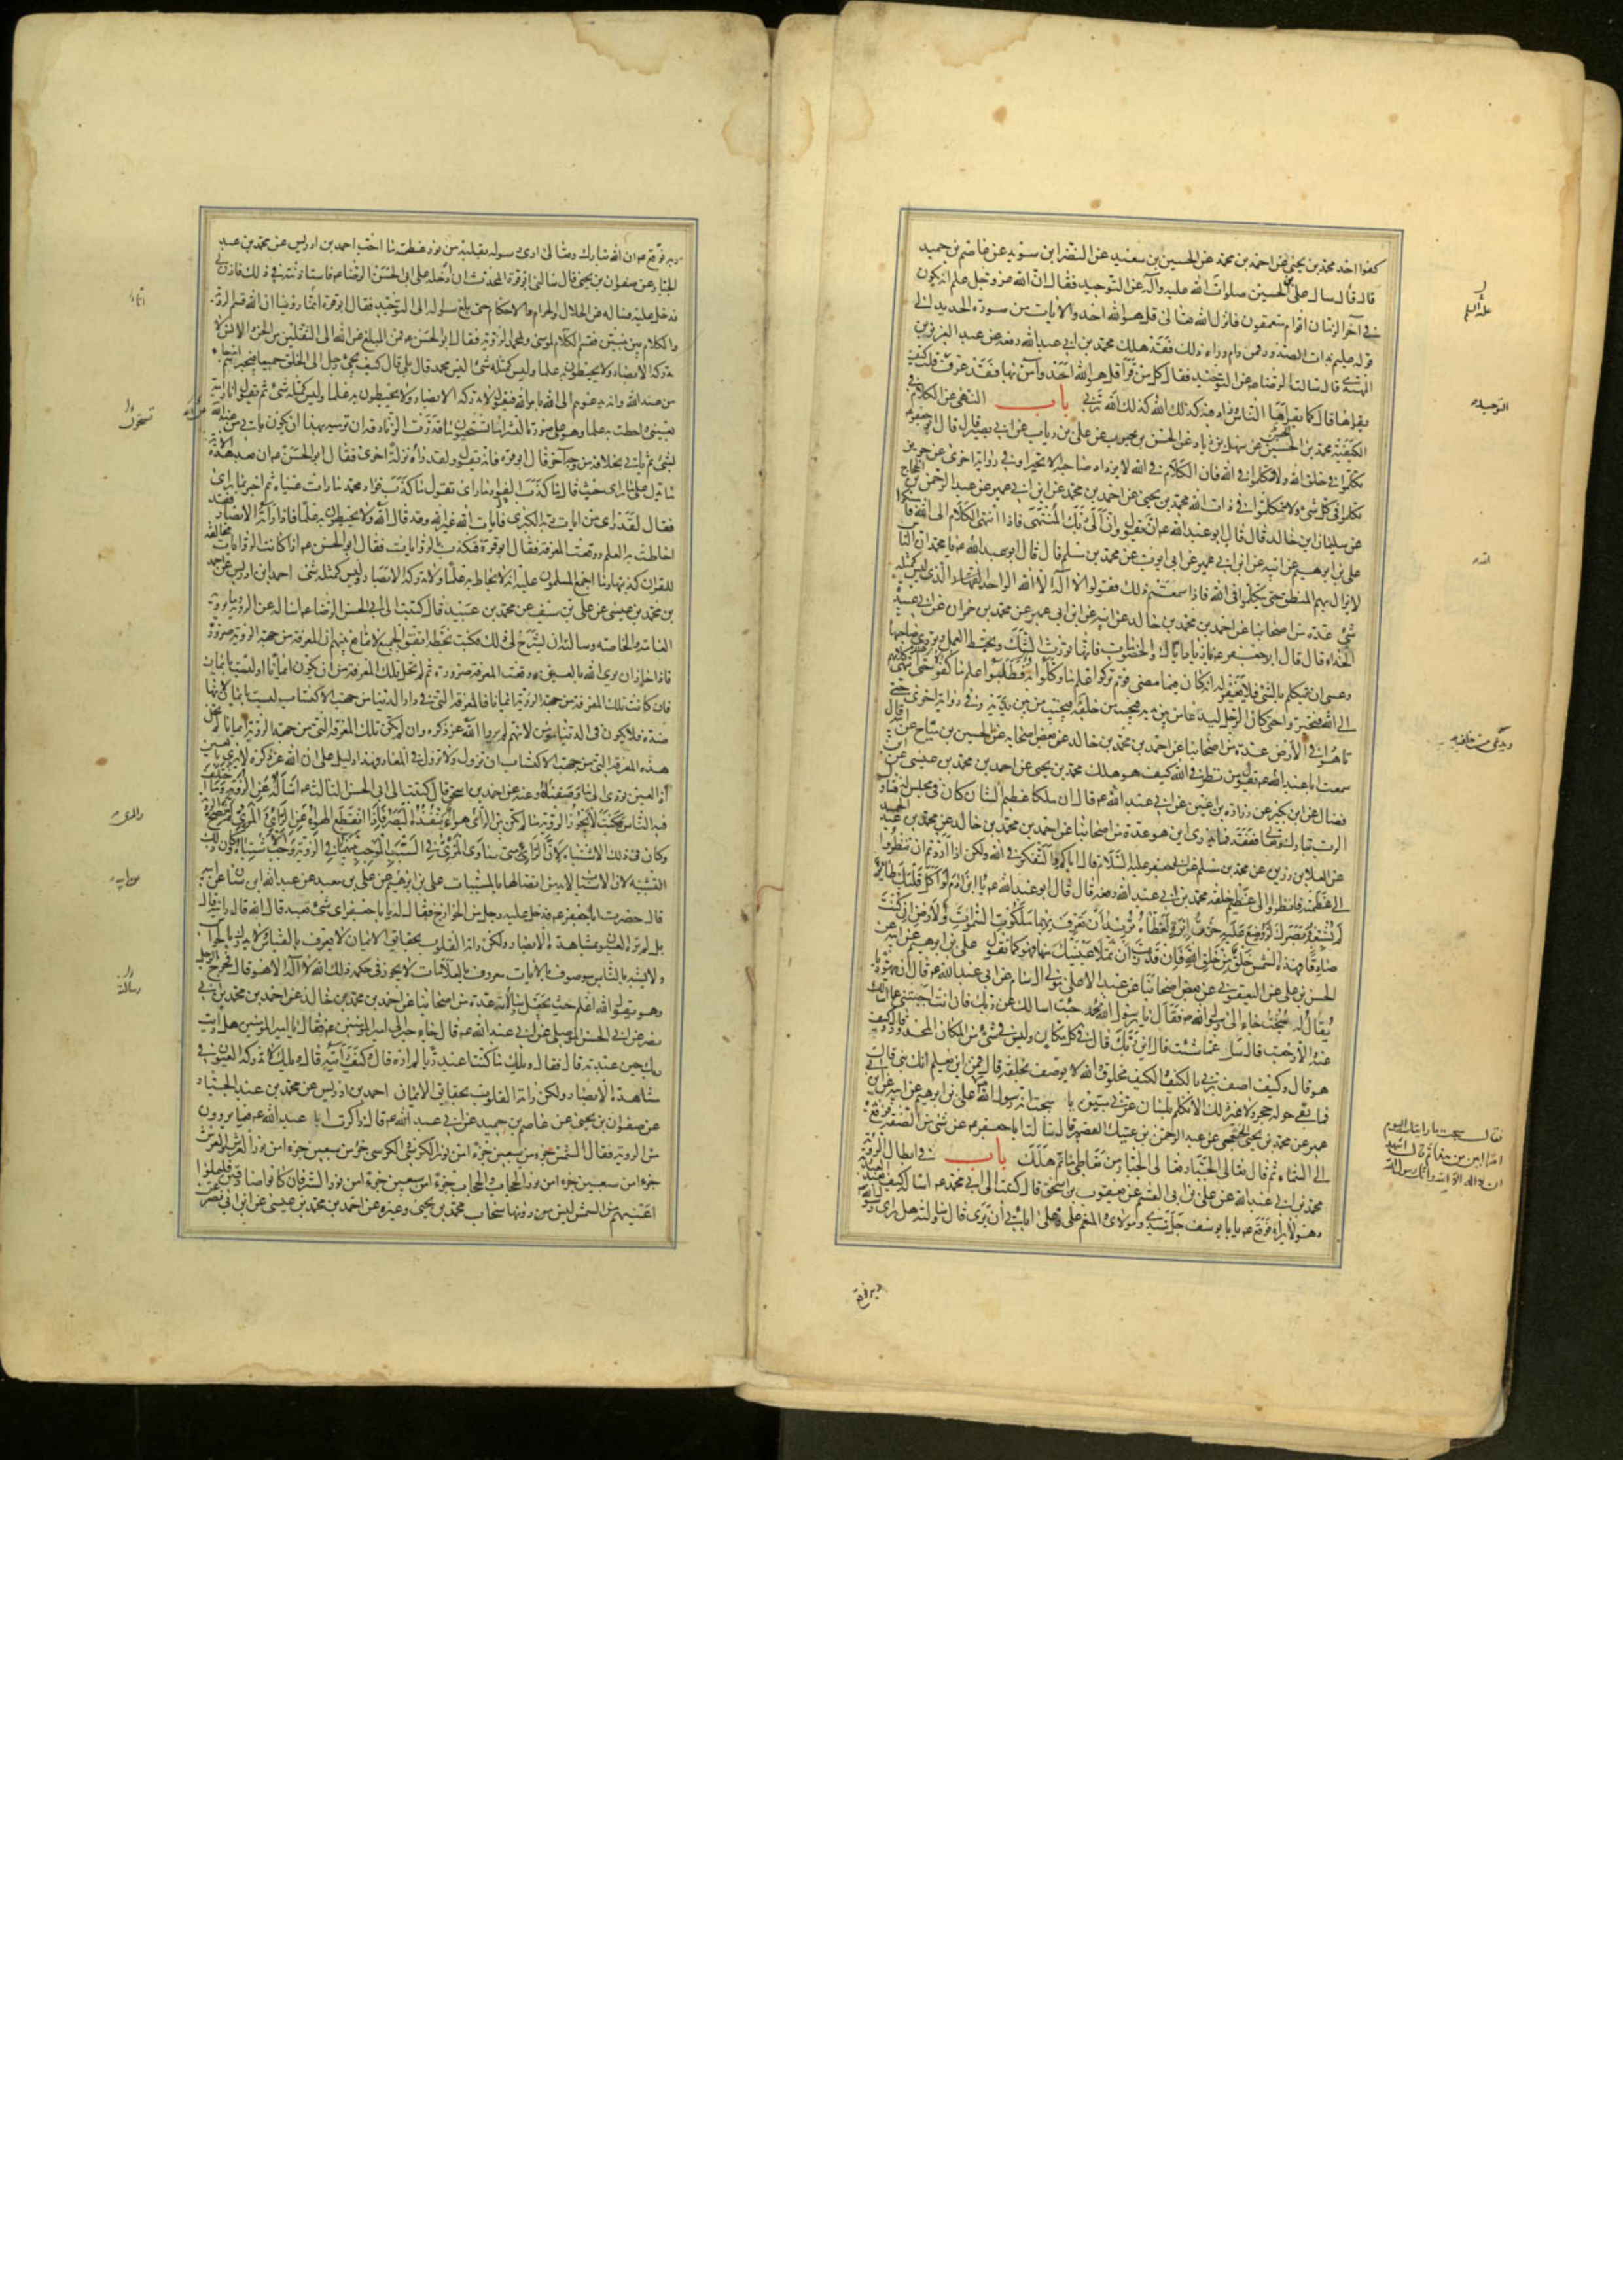 كفوا احد محمد بن يحيى عن احمد بن محمد عن الحسين بن سعيد عن النضر ابن سويد عن عاصم بن حميد
قال قال سال على بن الحسين صلوات الله عليه وآله عن التوحيد فقال ان الله عز وجل علم انه يكون
في آخر الزمان اقوام متعمقون فانزل الله تعالى قل هو الله احد والايات من سورة الحديد الى
قوله عليم بذات الصدور فمن رام وراء ذلك فقد هلك محمد بن ابي عبد الله رفعه عن عبد العزيز بن
المهتدى قال سالت الرضا عن التوحيد فقال كل من قرأ قل هو الله احد وآمن بها فقد عرف قلت كيف
يقراها قال كما يقراها الناس وزاد فيه كذلك الله كذلك الله ربي باب النهى عن الكلام في
الكيفية محمد بن الحسن عن سهل بن زياد عن الحسن بن محبوب عن على بن رياب عن ابي بصير قال قال ابو جعفر
تكلموا في خلق الله ولا تتكلموا في الله فان الكلام في الله لا يزداد صاحبه الا تحيرا وفي رواية اخرى عن حريز
تكلموا في كل شئ ولا تتكلموا في ذات الله محمد بن يحيى عن احمد بن محمد عن ابن ابي عمير عن عبد الرحمن بن الحجاج
عن سليمان ابن خالد قال قال ابو عبد الله ع ان الله يقول وان الى ربك المنتهى فاذا انتهى الكلام الى الله فامسكوا
على بن ابرهيم عن ابيه عن ابن ابي عمير عن ابي ايوب عن محمد بن مسلم قال قال ابو عبد الله ع يا محمد ان الناس
لا يزال بهم المنطق حتى يتكلموا في الله فاذا سمعتم ذلك فقولوا لا اله الا الله الواحد الذى ليس كمثله
شئ عدة من اصحابنا عن احمد بن محمد بن خالد عن ابيه عن ابن ابي عمير عن محمد بن حمران عن ابي عبيدة
الحذاء قال قال ابو جعفر ع يا زياد اياك والخصومات فانها تورث الشك وتحبط العمل وتردى صاحبها
وعسى ان يتكلم بالشئ فلا يغفر له انه كان فيما مضى قوم تركوا علم ما وكلوا به وطلبوا علم ما كفوه حتى انتهى كلامهم
الى الله فتحيروا حتى كان الرجل ليدعا من بين يديه فيجيب من خلفه ويدعا من خلفه فيجيب من بين يديه وفي رواية اخرى حتى
تاهوا في الارض عدة من اصحابنا عن احمد بن محمد بن خالد عن بعض اصحابه عن الحسين بن مياح عن ابيه قال
سمعت ابا عبد الله ع يقول من نظر في الله كيف هو هلك محمد بن يحيى عن احمد بن محمد بن عيسى عن ابن
فضال عن ابن بكير عن زرارة بن اعين عن ابي عبد الله ع قال ان ملكا عظيم الشان كان في مجلس له فتناول
الرب تبارك وتعالى ففقد فما يدرى اين هو عدة من اصحابنا عن احمد بن محمد بن خالد عن محمد بن عبد الحميد
عن العلا بن رزين عن محمد بن مسلم عن ابي جعفر عليه السلام قال اياكم والتفكر في الله ولكن اذا اردتم ان تنظروا
الى عظمته فانظروا الى عظيم خلقه محمد بن ابي عبد الله رفعه قال قال ابو عبد الله ع يا ابن آدم لو اكل قلبك طائر
لم يشبعه وبصرك لو وضع عليه خرق ابرة لغطاه تريد ان تعرف بهما ملكوت السموات والارض ان كنت
صادقا فهذه الشمس خلق من خلق الله فان قدرت ان تملا عينيك منها فهو كما تقول على بن ابرهيم عن ابيه عن
الحسن بن على عن اليعقوبي عن بعض اصحابنا عن عبد الاعلى مولى آل سام عن ابي عبد الله ع قال ان يهوديا
يقال له سبحت جاء الى رسول الله ص فقال يا رسول الله جئت اسالك عن ربك فان انت اجبتني عما اسالك
عنه والا رجعت قال سل عما شئت قال اين ربك قال في كل مكان وليس في شئ من المكان المحدود قال وكيف
هو قال وكيف اصف ربي بالكيف والكيف مخلوق والله لا يوصف بخلقه قال فمن اين يعلم انك نبي قال
فما بقي حوله حجر ولا غير ذلك الا تكلم بلسان عربي مبين يا سبحت انه رسول الله ص على بن ابرهيم عن ابيه عن ابن ابي
عمير عن محمد بن يحيى الخثعمي عن عبد الرحمن بن عتيك القصير قال سالت ابا جعفر ع عن شئ من الصفة فرفع يده
الى السماء ثم قال تعالى الجبار تعالى الجبار من تعاطى ما ثم هلك باب في ابطال الروية
محمد بن ابي عبد الله عن على بن ابي القسم عن يعقوب بن اسحق قال كتبت الى ابي محمد ع اساله كيف يعبد العبد ربه
وهو لا يراه فوقع ع يا ابا يوسف جل سيدى ومولاى والمنعم على وعلى ابائي ان يرى قال وسالته هل راى رسول الله
ربه فوقع
التوحيد
ربه فوقع ع ان الله تبارك وتعالى ارى رسوله بقلبه من نور عظمته ما احب احمد بن ادريس عن محمد بن عبد
الجبار عن صفوان بن يحيى قال سالني ابو قرة المحدث ان ادخله على ابي الحسن الرضا ع فاستاذنته في ذلك فاذن لي
فدخل عليه فساله عن الحلال والحرام والاحكام حتى بلغ سواله الى التوحيد فقال ابو قرة انا روينا ان الله قسم الروية
والكلام بين نبيين فقسم الكلام لموسى ولمحمد الروية فقال ابو الحسن ع فمن المبلغ عن الله الى الثقلين من الجن والانس لا
تدركه الابصار ولا يحيطون به علما وليس كمثله شئ اليس محمد قال بلى قال كيف يجئ رجل الى الخلق جميعا فيخبرهم انه جاء
من عند الله وانه يدعوهم الى الله بامر الله فيقول لا تدركه الابصار ولا يحيطون به علما وليس كمثله شئ ثم يقول انا رايته
بعيني واحطت به علما وهو على صورة البشر اما تستحيون ما قدرت الزنادقة ان ترميه بهذا ان يكون ياتي من عند الله
بشئ ثم ياتي بخلافه من وجه آخر قال ابو قرة فانه يقول ولقد رآه نزلة اخرى فقال ابو الحسن ع ان بعد هذه الآية
ما يدل على ما راى حيث قال ما كذب الفؤاد ما راى يقول ما كذب فؤاد محمد ما رات عيناه ثم اخبر بما راى
فقال لقد راى من ايات ربه الكبرى فايات الله غير الله وقد قال الله ولا يحيطون به علما فاذا راته الابصار فقد
احاطت به العلم ووقعت المعرفة فقال ابو قرة فتكذب بالروايات فقال ابو الحسن ع اذا كانت الروايات مخالفة
للقران كذبتها وما اجمع المسلمون عليه انه لا يحاط به علما ولا تدركه الابصار وليس كمثله شئ احمد ابن ادريس عن احمد
بن محمد بن عيسى عن على بن سيف عن محمد بن عبيد قال كتبت الى ابي الحسن الرضا ع اساله عن الروية وما ترويه
العامة والخاصة وسالته ان يشرح لي ذلك فكتب بخطه اتفق الجميع لا تمانع بينهم ان المعرفة من جهة الروية ضرورة
فاذا جاز ان يرى الله بالعين وقعت المعرفة ضرورة ثم لم تخل تلك المعرفة من ان يكون ايمانا او ليست بايمان
فان كانت تلك المعرفة من جهة الروية ايمانا فالمعرفة التي في دار الدنيا من جهة الاكتساب ليست بايمان لانها
ضده فلا يكون في الدنيا مؤمن لانهم لم يروا الله عز ذكره وان لم تكن تلك المعرفة التي من جهة الروية ايمانا لم تخل
هذه المعرفة التي من جهة الاكتساب ان تزول ولا تزول في المعاد فهذا دليل على ان الله عز ذكره لا يرى بالعين
اذ العين تؤدى الى ما وصفناه وعنه عن احمد بن اسحق قال كتبت الى ابي الحسن الثالث ع اساله عن الروية وما اختلف
فيه الناس فكتب لا يجوز الروية ما لم يكن بين الرائي والمرئي هواء ينفذه البصر فاذا انقطع الهواء عن الرائي والمرئي لم تصح الروية
وكان في ذلك الاشتباه لان الرائي متى ساوى المرئي في السبب الموجب بينهما في الروية وجب الاشتباه وكان ذلك
التشبيه لان الاسباب لا بد من اتصالها بالمسببات على بن ابرهيم عن على بن معبد عن عبد الله ابن سنان عن ابيه
قال حضرت ابا جعفر ع فدخل عليه رجل من الخوارج فقال له يا ابا جعفر اى شئ تعبد قال الله قال رايته قال
بل لم تره العيون بمشاهدة الابصار ولكن راته القلوب بحقايق الايمان لا يعرف بالقياس ولا يدرك بالحواس
ولا يشبه بالناس موصوف بالايات معروف بالعلامات لا يجوز في حكمه ذلك الله لا اله الا هو قال فخرج الرجل
وهو يقول الله اعلم حيث يجعل رسالته عدة من اصحابنا عن احمد بن محمد بن خالد عن احمد بن محمد بن ابي
نصر عن ابي الحسن الموصلي عن ابي عبد الله ع قال جاء حبر الى امير المؤمنين ع فقال يا امير المؤمنين هل رايت
ربك حين عبدته قال فقال ويلك ما كنت اعبد ربا لم اره قال وكيف رايته قال ويلك لا تدركه العيون في
مشاهدة الابصار ولكن راته القلوب بحقايق الايمان احمد بن ادريس عن محمد بن عبد الجبار
عن صفوان بن يحيى عن عاصم بن حميد عن ابي عبد الله ع قال ذاكرت ابا عبد الله ع فيما يروون
من الروية فقال الشمس جزء من سبعين جزءا من نور الكرسي والكرسي جزء من سبعين جزءا من نور العرش والعرش
جزء من سبعين جزءا من نور الحجاب والحجاب جزء من سبعين جزءا من نور الستر فان كانوا صادقين فليملؤا
اعينهم من الشمس ليس من دونها سحاب محمد بن يحيى وغيره عن احمد بن محمد بن عيسى عن ابن ابي نصر
تستحيون
رسالته